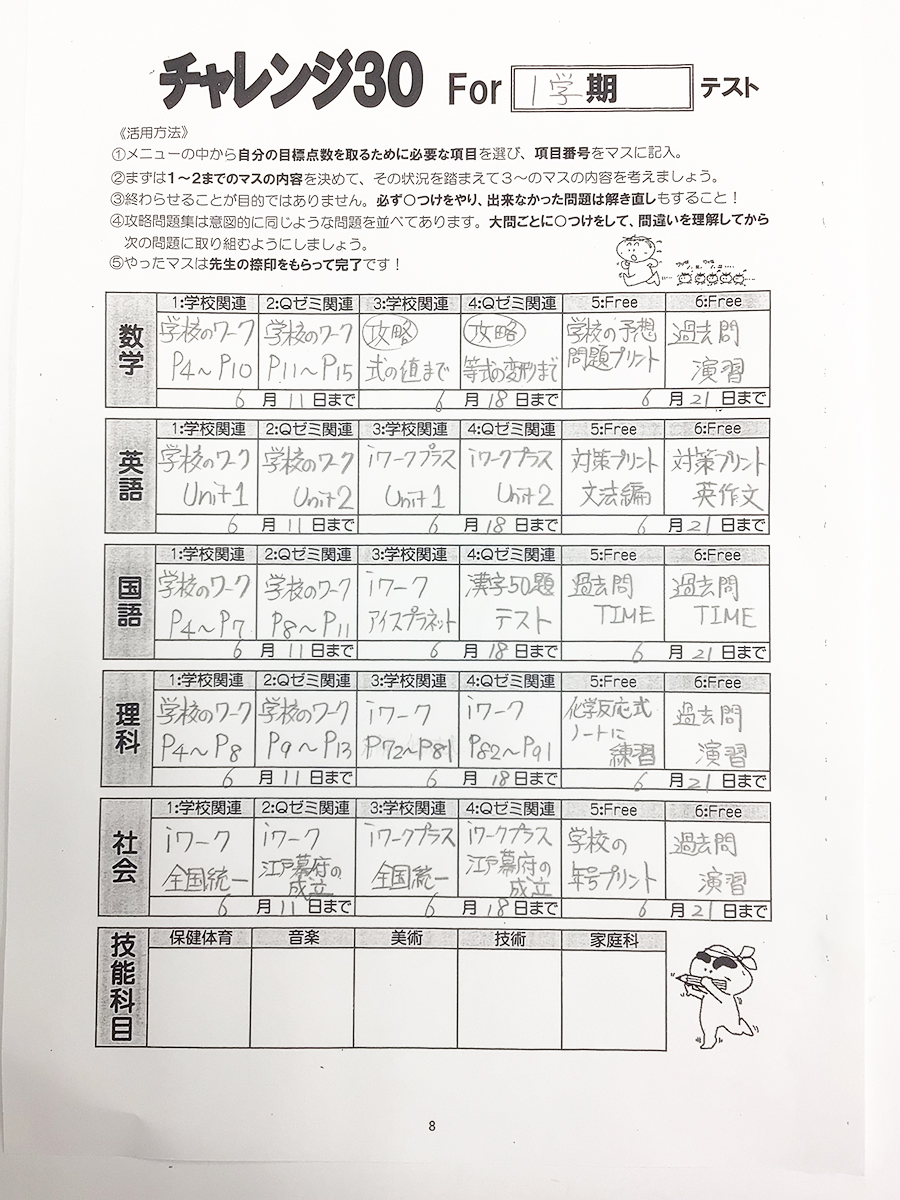 チャレンジ30 For 1学期 テスト
《活用方法》
①メニューの中から自分の目標点数を取るために必要な項目を選び、項目番号をマスに記入。
②まずは1～2までのマスの内容を決めて、その状況を踏まえて3～のマスの内容を考えましょう。
③終わらせることが目的ではありません。必ず○つけをやり、出来なかった問題は解き直しもすること！
④攻略問題集は意図的に同じような問題を並べてあります。大問ごとに○つけをして、間違いを理解してから
次の問題に取り組むようにしましょう。
⑤やったマスは先生の捺印をもらって完了です！
数学
1:学校関連 2:Qゼミ関連 3:学校関連 4:Qゼミ関連 5:Free 6:Free
学校のワーク 学校のワーク 攻略 攻略 学校の予想 過去問
P4～P10 P11～P15 式の値まで 等式の変形まで 問題プリント 演習
6月11日まで 6月18日まで 6月21日まで
英語
1:学校関連 2:Qゼミ関連 3:学校関連 4:Qゼミ関連 5:Free 6:Free
学校のワーク 学校のワーク iワークプラス iワークプラス 対策プリント 対策プリント
Unit1 Unit2 Unit1 Unit2 文法編 英作文
6月11日まで 6月18日まで 6月21日まで
国語
1:学校関連 2:Qゼミ関連 3:学校関連 4:Qゼミ関連 5:Free 6:Free
学校のワーク 学校のワーク iワーク 漢字50題 過去問 過去問
P4～P7 P8～P11 アイスプラネット テスト TIME TIME
6月11日まで 6月18日まで 6月21日まで
理科
1:学校関連 2:Qゼミ関連 3:学校関連 4:Qゼミ関連 5:Free 6:Free
学校のワーク 学校のワーク iワーク iワーク 化学反応式 過去問
P4～P8 P9～P13 P72～P81 P82～P91 ノートに練習 演習
6月11日まで 6月18日まで 6月21日まで
社会
1:学校関連 2:Qゼミ関連 3:学校関連 4:Qゼミ関連 5:Free 6:Free
iワーク iワーク iワークプラス iワークプラス 学校の 過去問
全国統一 江戸幕府の成立 全国統一 江戸幕府の成立 年号プリント 演習
6月11日まで 6月18日まで 6月21日まで
技能科目
保健体育 音楽 美術 技術 家庭科
8